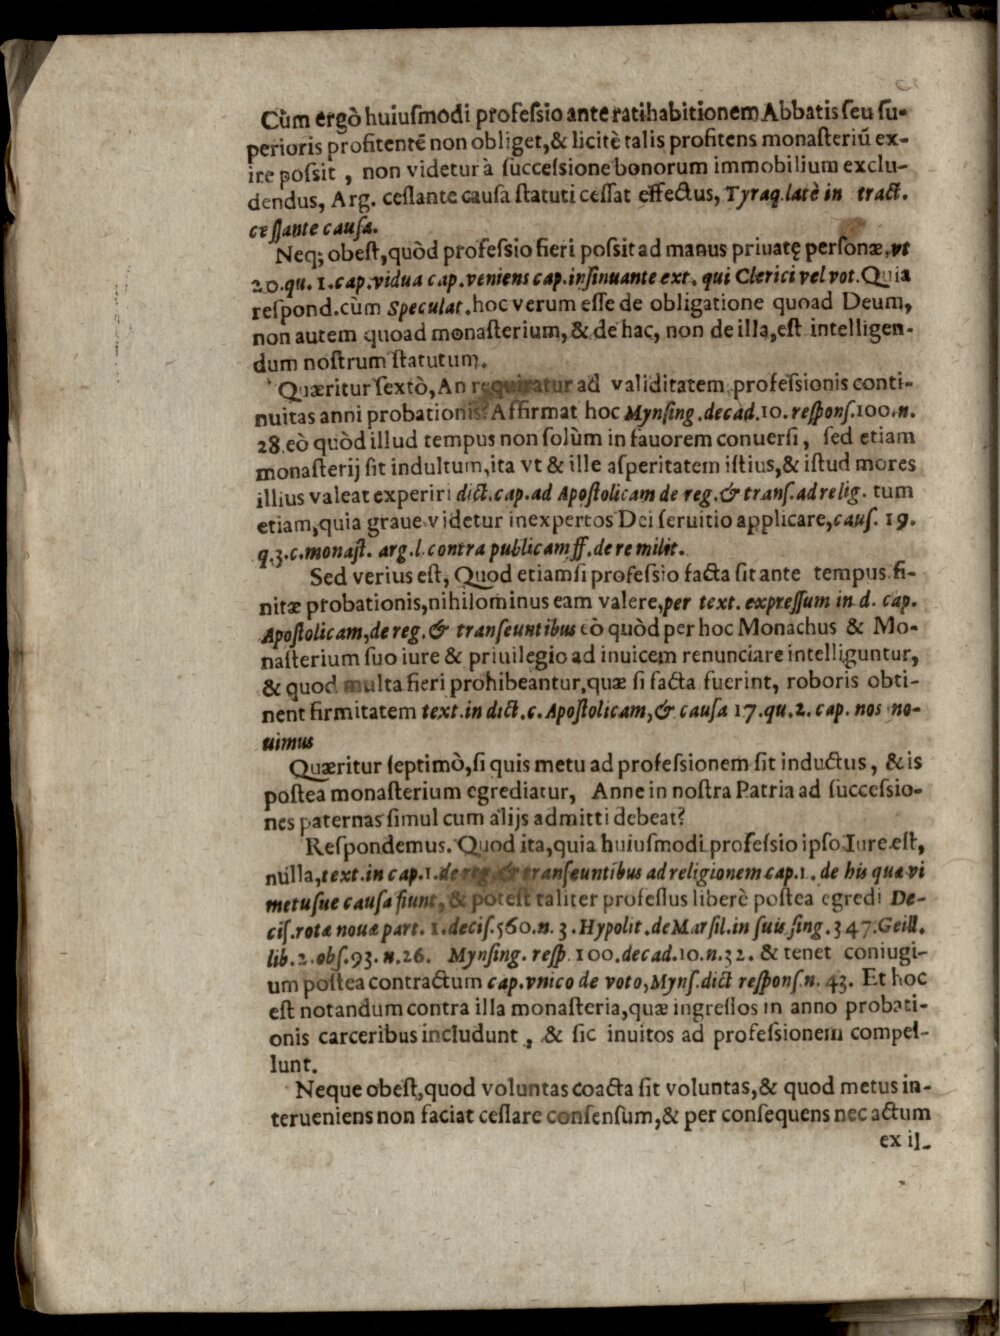 Cùm ergò huiuſmodi profeſsio ante ratihabitionem Abbatis ſeu ſu-
perioris profitentē non obliget,& licitè talis profitens monaſteriū ex-
ire poſsit , non videtur à ſucceſsione bonorum immobilium exclu-
dendus, Arg. ceſſante cauſa ſtatuti ceſſat effectus, Tyraq.latè in tract.
ceſſante cauſa.
Neq; obeſt,quòd profeſsio fieri poſsit ad manus priuatę perſonæ,vt
20.qu. 1.cap.vidua cap.veniens cap.inſinuante ext. qui Clerici vel vot.Quia
reſpond.cùm Speculat.hoc verum eſſe de obligatione quoad Deum,
non autem quoad monaſterium,& de hac, non de illa,eſt intelligen-
dum noſtrum ſtatutum.
Quæritur ſextò,An requiratur ad validitatem profeſsionis conti-
nuitas anni probationis? Affirmat hoc Mynſing.decad.10. reſponſ.100.n.
28.eò quòd illud tempus non ſolùm in fauorem conuerſi, ſed etiam
monaſterij ſit indultum,ita vt & ille aſperitatem iſtius,& iſtud mores
illius valeat experiri dict.cap.ad Apoſtolicam de reg.& tranſ.ad relig. tum
etiam,quia graue videtur inexpertos Dei ſeruitio applicare,cauſ. 19.
q.3.c.monaſt. arg.l.contra publicam ff.de re milit.
Sed verius eſt, Quod etiamſi profeſsio facta ſit ante tempus fi-
nitæ probationis,nihilominus eam valere,per text. expreſſum in d. cap.
Apoſtolicam,de reg.& tranſeuntibus eò quòd per hoc Monachus & Mo-
naſterium ſuo iure & priuilegio ad inuicem renunciare intelliguntur,
& quod multa fieri prohibeantur,quæ ſi facta fuerint, roboris obti-
nent firmitatem text.in dict.c.Apoſtolicam,& cauſa 17.qu.2. cap. nos no-
uimus
Quæritur ſeptimò,ſi quis metu ad profeſsionem ſit inductus, & is
poſtea monaſterium egrediatur, Anne in noſtra Patria ad ſucceſsio-
nes paternas ſimul cum alijs admitti debeat?
Reſpondemus. Quod ita,quia huiuſmodi profeſsio ipſo Iure eſt,
nulla,text.in cap.1.de reg.& tranſeuntibus ad religionem cap.1. de his quæ vi
metusue cauſa fiunt, & poteſt taliter profeſſus liberè poſtea egredi De-
ciſ.rotæ nouæ part. 1.deciſ.560.n. 3.Hypolit.de Marſil.in ſuis ſing.347.Geill.
lib.2.obſ.93. n.26. Mynſing. reſp. 100.decad.10.n.32. & tenet coniugi-
um poſtea contractum cap.vnico de voto,Mynſ.dict reſponſ.n. 43. Et hoc
eſt notandum contra illa monaſteria,quæ ingreſſos in anno probati-
onis carceribus includunt , & ſic inuitos ad profeſsionem compel-
lunt.
Neque obeſt,quod voluntas coacta ſit voluntas,& quod metus in-
terueniens non faciat ceſſare conſenſum,& per conſequens nec actum
ex il-